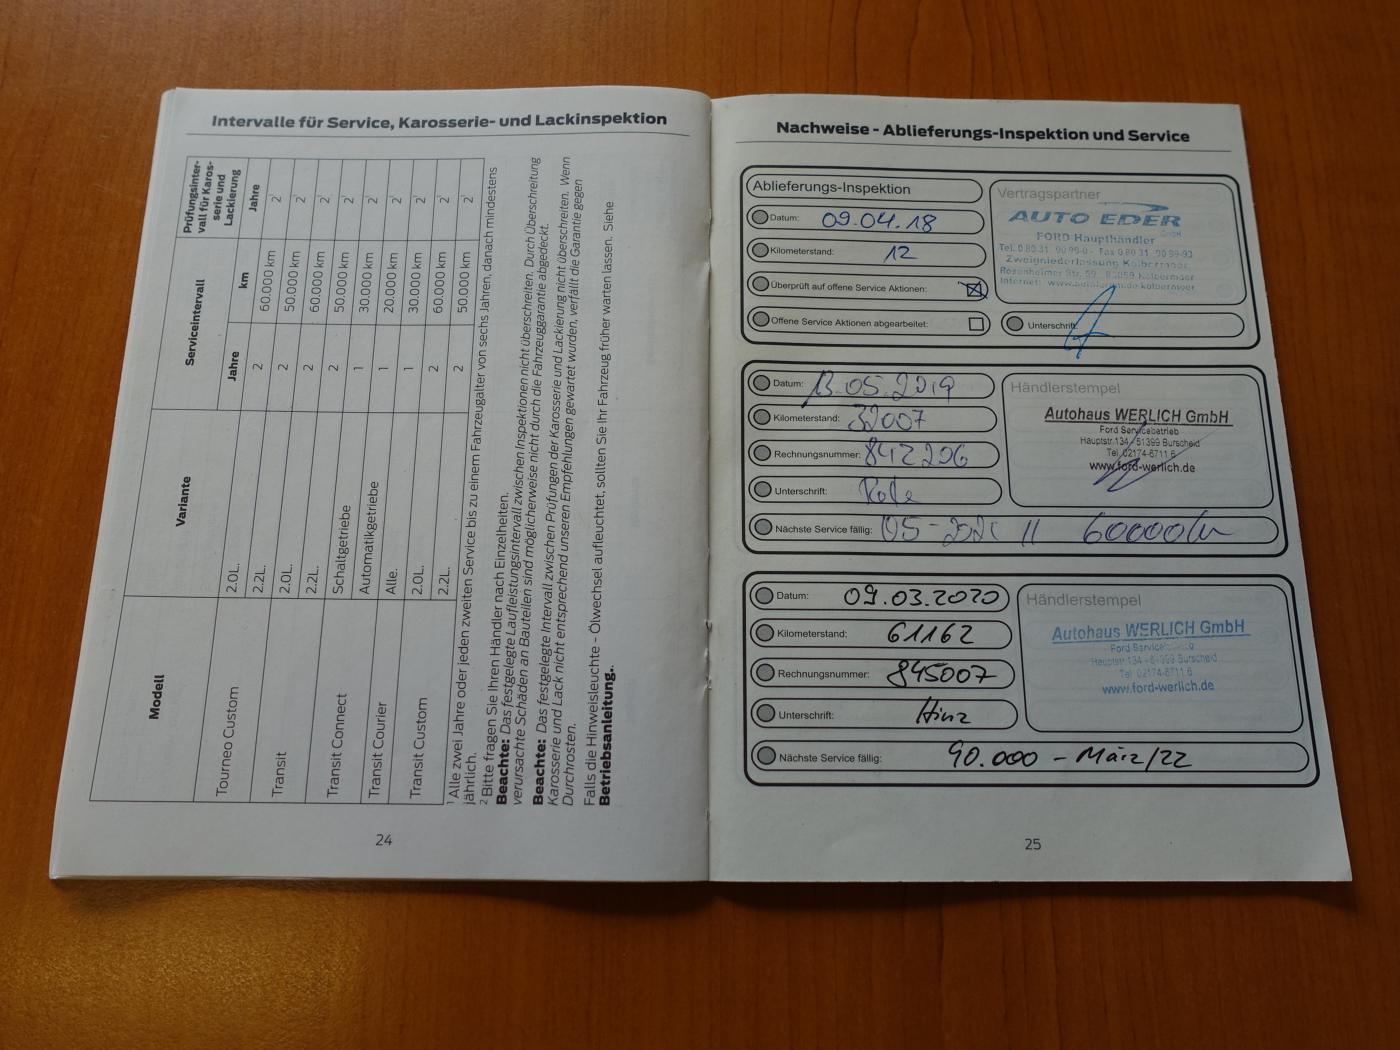 Intervalle für Service, Karosserie- und Lackinspektion
Modell
Variante
Serviceintervall
Prüfungsinter-
vall für Karos-
serie und
Lackierung
Jahre
km
Jahre
Tourneo Custom
2.0L. 2 60.000 km 2¹
2.2L. 2 50.000 km 2¹
Transit
2.0L. 2 60.000 km 2¹
2.2L. 2 50.000 km 2¹
Transit Connect
Schaltgetriebe 1 30.000 km 2¹
Automatikgetriebe 1 20.000 km 2¹
Transit Courier
Alle. 1 30.000 km 2¹
Transit Custom
2.0L. 2 60.000 km 2¹
2.2L. 2 50.000 km 2¹
¹ Alle zwei Jahre oder jeden zweiten Service bis zu einem Fahrzeugalter von sechs Jahren, danach mindestens
jährlich.
² Bitte fragen Sie Ihren Händler nach Einzelheiten.
Beachte: Das festgelegte Laufleistungsintervall zwischen Inspektionen nicht überschreiten. Durch Überschreitung
verursachte Schäden an Bauteilen sind möglicherweise nicht durch die Fahrzeuggarantie abgedeckt.
Beachte: Das festgelegte Intervall zwischen Prüfungen der Karosserie und Lackierung nicht überschreiten. Wenn
Karosserie und Lack nicht entsprechend unseren Empfehlungen gewartet wurden, verfällt die Garantie gegen
Durchrosten.
Falls die Hinweisleuchte - Ölwechsel aufleuchtet, sollten Sie Ihr Fahrzeug früher warten lassen. Siehe
Betriebsanleitung.
24
Nachweise - Ablieferungs-Inspektion und Service
Ablieferungs-Inspektion
Datum: 09.04.18
Kilometerstand: 12
Überprüft auf offene Service Aktionen:
Offene Service Aktionen abgearbeitet:
Vertragspartner
AUTO EDER
GmbH
FORD-Haupthändler
Tel. 0 80 31 90 99-0 - Fax 0 80 31 90 99-93
Zweigniederlassung Kolbermoor
Rosenheimer Str. 59 83059 Kolbermoor
Unterschrift:
Datum: 13.05.2019
Kilometerstand: 32007
Rechnungsnummer: 842206
Unterschrift:
Nächste Service fällig: 05-202 // 60000km
Händlerstempel
Autohaus WERLICH GmbH
Ford Servicebetrieb
Hauptstr.134 - 51399 Burscheid
Tel. 02174-6711 6
www.ford-werlich.de
Datum: 09.03.2020
Kilometerstand: 61162
Rechnungsnummer: 845007
Unterschrift: Hinz
Nächste Service fällig: 90.000 - März/22
Händlerstempel
Autohaus WERLICH GmbH
Ford
Hauptstr.134 - 51399 Burscheid
Tel. 02174-6711 6
www.ford-werlich.de
25